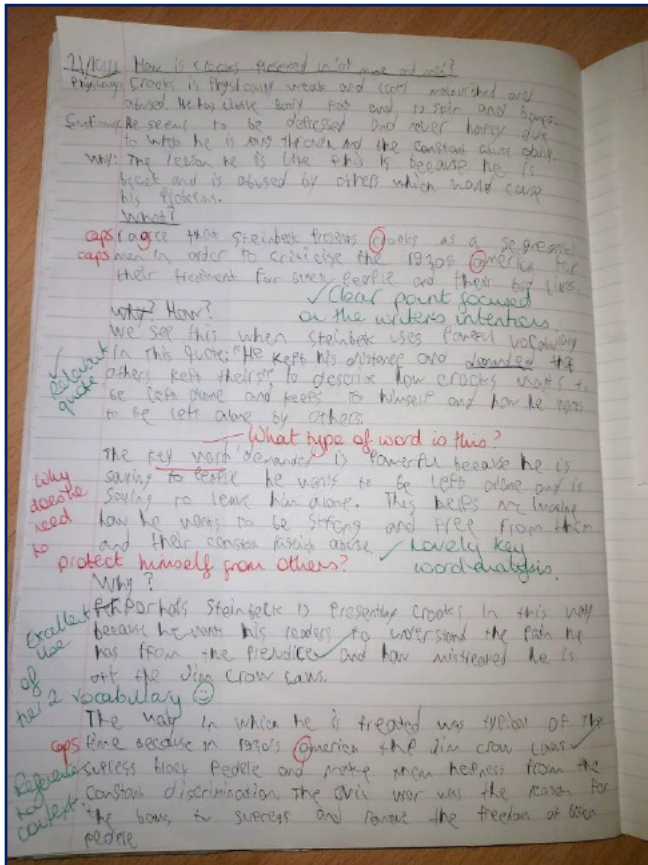 How is crooks presented in 'of mice and men'?
Physically: Crooks is Physically weak and looks malnurished and
abused. He has little body fat and is skin and bones.
He seems to be depressed and never happy due
to what he is and the constant abuse
Why: The reason he is like this is because he is
black and is abused by others which would cause
his problems.
What?
caps I agree that Steinbeck Presents crooks as a segregated
caps man in order to criticise the 1930s america for
their treatment for black people and their lives.
✓ Clear point focused
How?
on the writer's intentions.
We see this when Steinbeck uses Powerful vocabulary
✓ Relevant quote
in this quote: "He kept his distance and demanded that
others kept theirs", to describe how crooks wants to
be left alone and keeps to himself and how he wants
to be left alone by others.
What type of word is this?
The key word 'demanded' is Powerful because he is
saying to people he wants to be left alone and is
saying to leave him alone. This helps me imagine
how he wants to be strong and free from them
and their constant racist abuse. ✓ Lovely key
word analysis.
Why does he need to protect himself from others?
Why?
Perhaps Steinbeck is Presenting crooks in this way
because he wants his readers to understand the Pain he
has from the Prejudice ✓ and how mistreated he is
off the Jim Crow Laws.
Excellent use of tier 2 vocabulary
The way in which he is treated was typical of the
caps time because in 1930's america the Jim crow Laws ✓
supress black People and make them helpless from the
constant discrimination. The civil war was the reason for
the laws to supress and remove the freedom of black
people
Reference to context.